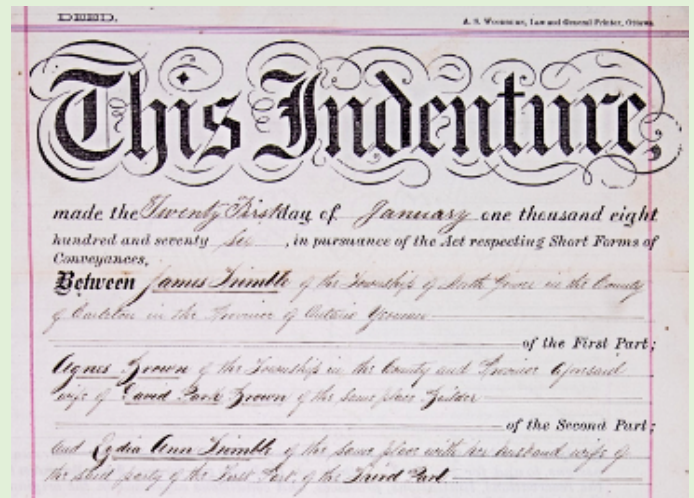 DEED.
A. S. Woodburn, Law and General Printer, Ottawa.
This Indenture,
made the Twenty First day of January one thousand eight
hundred and seventy six, in pursuance of the Act respecting Short Forms of
Conveyances,
Between James Trimble of the Township of North Gower in the County
of Carleton in the Province of Ontario Yeoman
of the First Part;
Agnes Brown of the Township in the County and Province aforesaid
wife of David Park Brown of the same place Builder
of the Second Part;
And Lydia Ann Trimble of the same place with her husband wife of
the said party of the First Part, of the Third Part